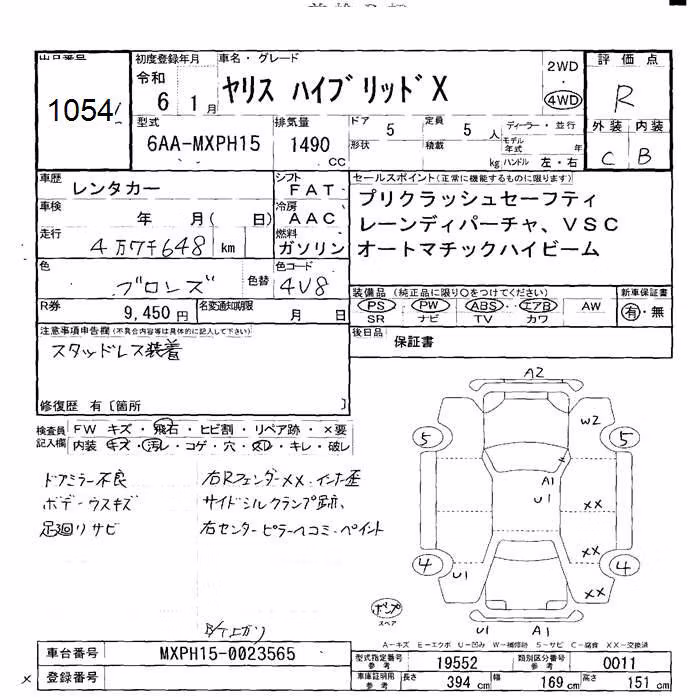 出品番号
1054
初度登録年月
令和
6 1月
車名・グレード
ヤリス ハイブリッド X
2WD
4WD
評価点
R
型式
6AA-MXPH15
排気量
1490
CC
ドア
5
定員
5 人
形状
積載
kg
ディーラー・並行
モデル年式 年
ハンドル 左・右
外装 内装
C B
車歴
レンタカー
シフト
FAT
セールスポイント(正常に機能するものに限ります)
プリクラッシュセーフティ
レーンディパーチャ、VSC
オートマチックハイビーム
車検
年 月( 日)
冷房
AAC
走行
4万7千648 km
燃料
ガソリン
色
ブロンズ
色替
色コード
4V8
装備品 (純正品に限り〇をつけてください)
PS PW ABS エアB AW
SR ナビ TV カワ
新車保証書
有・無
R券
9,450 円
名変通知期限
月 日
後日品
保証書
注意事項申告欄(不具合内容等は具体的に記入して下さい)
スタッドレス装着
修復歴 有〔箇所 〕
検査員記入欄
FW キズ・飛石・ヒビ割・リペア跡・×要
内装 キズ・汚レ・コゲ・穴・スレ・キレ・破レ
ドアミラー不良
ボデーウスキズ
足廻リサビ
右Rフェンダー××.インナー歪
サイドシルクランプ跡、
右センターピラーヘコミ・ペイント
A2
W2
5 5
A1
U1
××
××
4 4
U1
××
ポンプ
スペア
U1 A1
A-キズ E-エクボ U-凹み W-補修跡 S-サビ C-腐食 XX-交換済
車台番号
MXPH15-0023565
登録番号
×
型式指定番号
参考
19552
類別区分番号
参考
0011
車庫証明用
参考
長さ
394 cm
幅
169 cm
高さ
151 cm